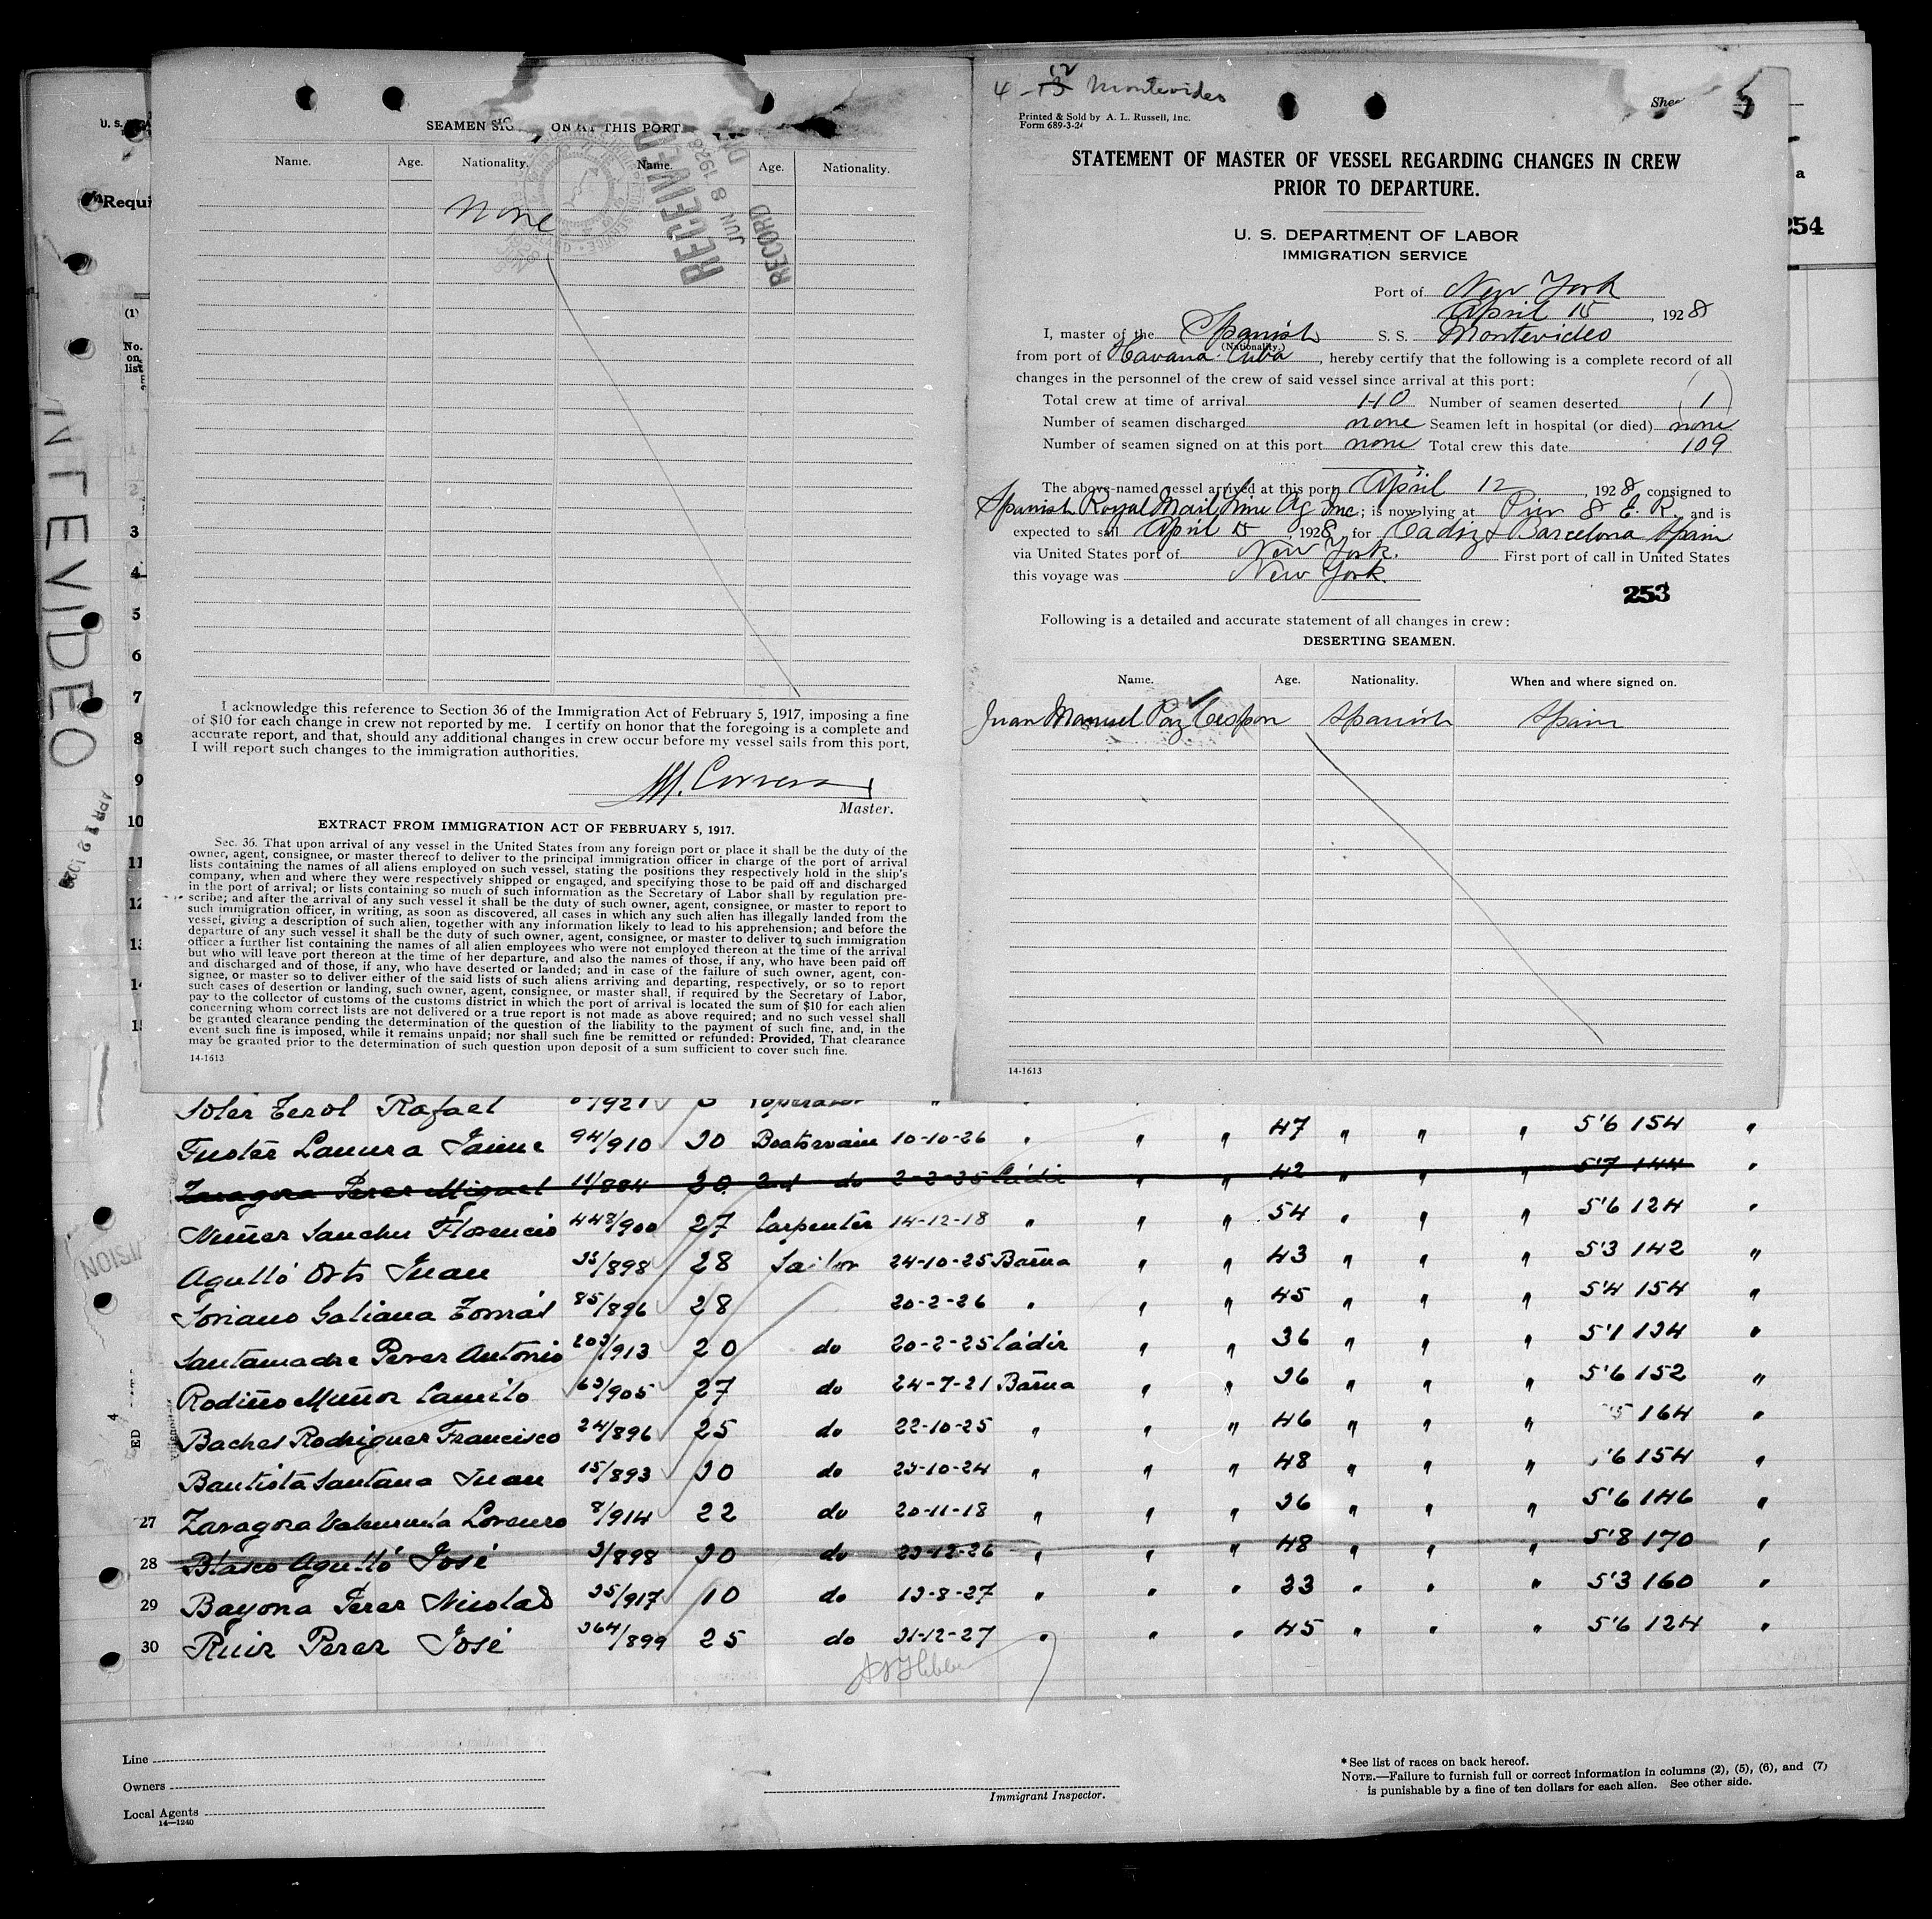 SEAMEN SIG ON AT THIS PORT
Name. Age. Nationality. Name. Age. Nationality.
None
RECEIVED
JUN 8 1928
RECORD DI
I acknowledge this reference to Section 36 of the Immigration Act of February 5, 1917, imposing a fine
of $10 for each change in crew not reported by me. I certify on honor that the foregoing is a complete and
accurate report, and that, should any additional changes in crew occur before my vessel sails from this port,
I will report such changes to the immigration authorities.
Master.
EXTRACT FROM IMMIGRATION ACT OF FEBRUARY 5, 1917.
Sec. 36. That upon arrival of any vessel in the United States from any foreign port or place it shall be the duty of the
owner, agent, consignee, or master thereof to deliver to the principal immigration officer in charge of the port of arrival
lists containing the names of all aliens employed on such vessel, stating the positions they respectively hold in the ship's
company, when and where they were respectively shipped or engaged, and specifying those to be paid off and discharged
in the port of arrival; or lists containing so much of such information as the Secretary of Labor shall by regulation pre-
scribe; and after the arrival of any such vessel it shall be the duty of such owner, agent, consignee, or master to report to
such immigration officer, in writing, as soon as discovered, all cases in which any such alien has illegally landed from the
vessel, giving a description of such alien, together with any information likely to lead to his apprehension; and before the
departure of any such vessel it shall be the duty of such owner, agent, consignee, or master to deliver to such immigration
officer a further list containing the names of all alien employees who were not employed thereon at the time of the arrival
but who will leave port thereon at the time of her departure, and also the names of those, if any, who have been paid off
and discharged and of those, if any, who have deserted or landed; and in case of the failure of such owner, agent, con-
signee, or master so to deliver either of the said lists of such aliens arriving and departing, respectively, or so to report
such cases of desertion or landing, such owner, agent, consignee, or master shall, if required by the Secretary of Labor,
pay to the collector of customs of the customs district in which the port of arrival is located the sum of $10 for each alien
concerning whom correct lists are not delivered or a true report is not made as above required; and no such vessel shall
be granted clearance pending the determination of the question of the liability to the payment of such fine, and, in the
event such fine is imposed, while it remains unpaid; nor shall such fine be remitted or refunded: Provided, That clearance
may be granted prior to the determination of such question upon deposit of a sum sufficient to cover such fine.
14-1613
4-12 Montevideo
Shee 5
Printed & Sold by A. L. Russell, Inc.
Form 689-3-24
STATEMENT OF MASTER OF VESSEL REGARDING CHANGES IN CREW
PRIOR TO DEPARTURE.
U. S. DEPARTMENT OF LABOR
IMMIGRATION SERVICE
Port of New York
April 15, 1928
I, master of the Spanish S. S. Montevideo
(Nationality.)
from port of Havana Cuba, hereby certify that the following is a complete record of all
changes in the personnel of the crew of said vessel since arrival at this port:
Total crew at time of arrival 110 Number of seamen deserted (1)
Number of seamen discharged none Seamen left in hospital (or died) none
Number of seamen signed on at this port none Total crew this date 109
The above-named vessel arrived at this port April 12, 1928, consigned to
Spanish Royal Mail Line Ag Inc; is now lying at Pier 8 E. R. and is
expected to sail April 15, 1928, for Cadiz & Barcelona Spain
via United States port of New York. First port of call in United States
this voyage was New York.
253
Following is a detailed and accurate statement of all changes in crew:
DESERTING SEAMEN.
Name. Age. Nationality. When and where signed on.
Juan Manuel Paz Cespon Spanish Spain
14-1613
U. S.
Requi
a
254
(1)
No.
on
list
NTEVIDEO
APR 12 1928
VISION
2
3
4
5
6
7
8
9
10
11
12
13
14
15
Soler Terol Rafael /921 Operator "
Fuster Lamera Jaime 94/910 30 Boatswain 10-10-26 " " " 47 " " " 5'6 154 "
Zaragoza Perez Miguel 11/884 30 2nd do 2-2-25 Cádiz " " 42 " " " 5'7 144 "
Nuñez Sanchez Florencio 448/900 27 Carpenter 14-12-18 " " " 54 " " " 5'6 124 "
Agulló Orts Juan 33/898 28 Sailor 24-10-25 Barna " " 43 " " " 5'3 142 "
Soriano Galiana Tomás 85/896 28 20-2-26 " " " 45 " " " 5'4 154 "
Santamadre Perez Antonio 203/913 20 do 20-2-25 Cádiz " " 36 " " " 5'1 134 "
Rodiño Muñoz Camilo 63/905 27 do 24-7-21 Barna " " 36 " " " 5'6 152 "
Baches Rodriguez Francisco 24/896 25 do 22-10-25 " " " 46 " " " 164 "
Bautista Santana Juan 15/893 30 do 23-10-24 " " " 48 " " " '6 154 "
27 Zaragoza Valenzuela Lorenzo 8/914 22 do 20-11-18 " " " 36 " " " 5'6 146 "
28 Blasco Agulló José 3/898 30 do 23-12-26 " " " 48 " " " 5'8 170 "
29 Bayona Perez Nicolas 35/917 10 do 13-8-27 " " " 23 " " " 5'3 160 "
30 Ruiz Perez José 364/899 25 do 31-12-27 " " " 45 " " " 5'6 124 "
Line
Owners
Local Agents
14—1240
Immigrant Inspector.
* See list of races on back hereof.
NOTE.—Failure to furnish full or correct information in columns (2), (5), (6), and (7)
is punishable by a fine of ten dollars for each alien. See other side.